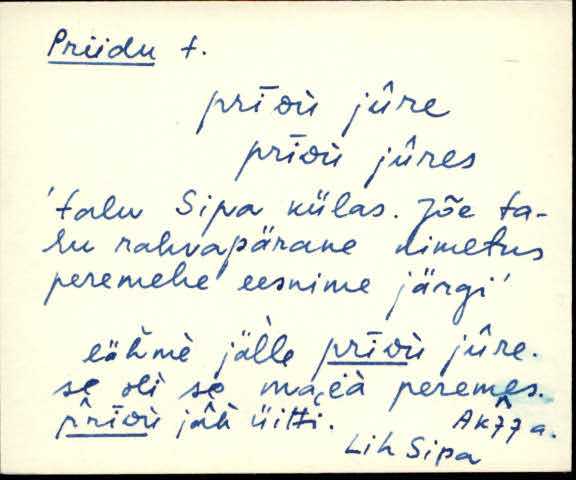 Priidu t.
prīᴅù jûre
prīᴅù jûres
'talu Sipa külas. Jõe ta-
lu rahvapärane nimetus
peremehe eesnime järgi'
jälle prīᴅù jûre.
sè olì se peremes.
prīᴅù üitti.
Ak77 a.
Lih Sipa